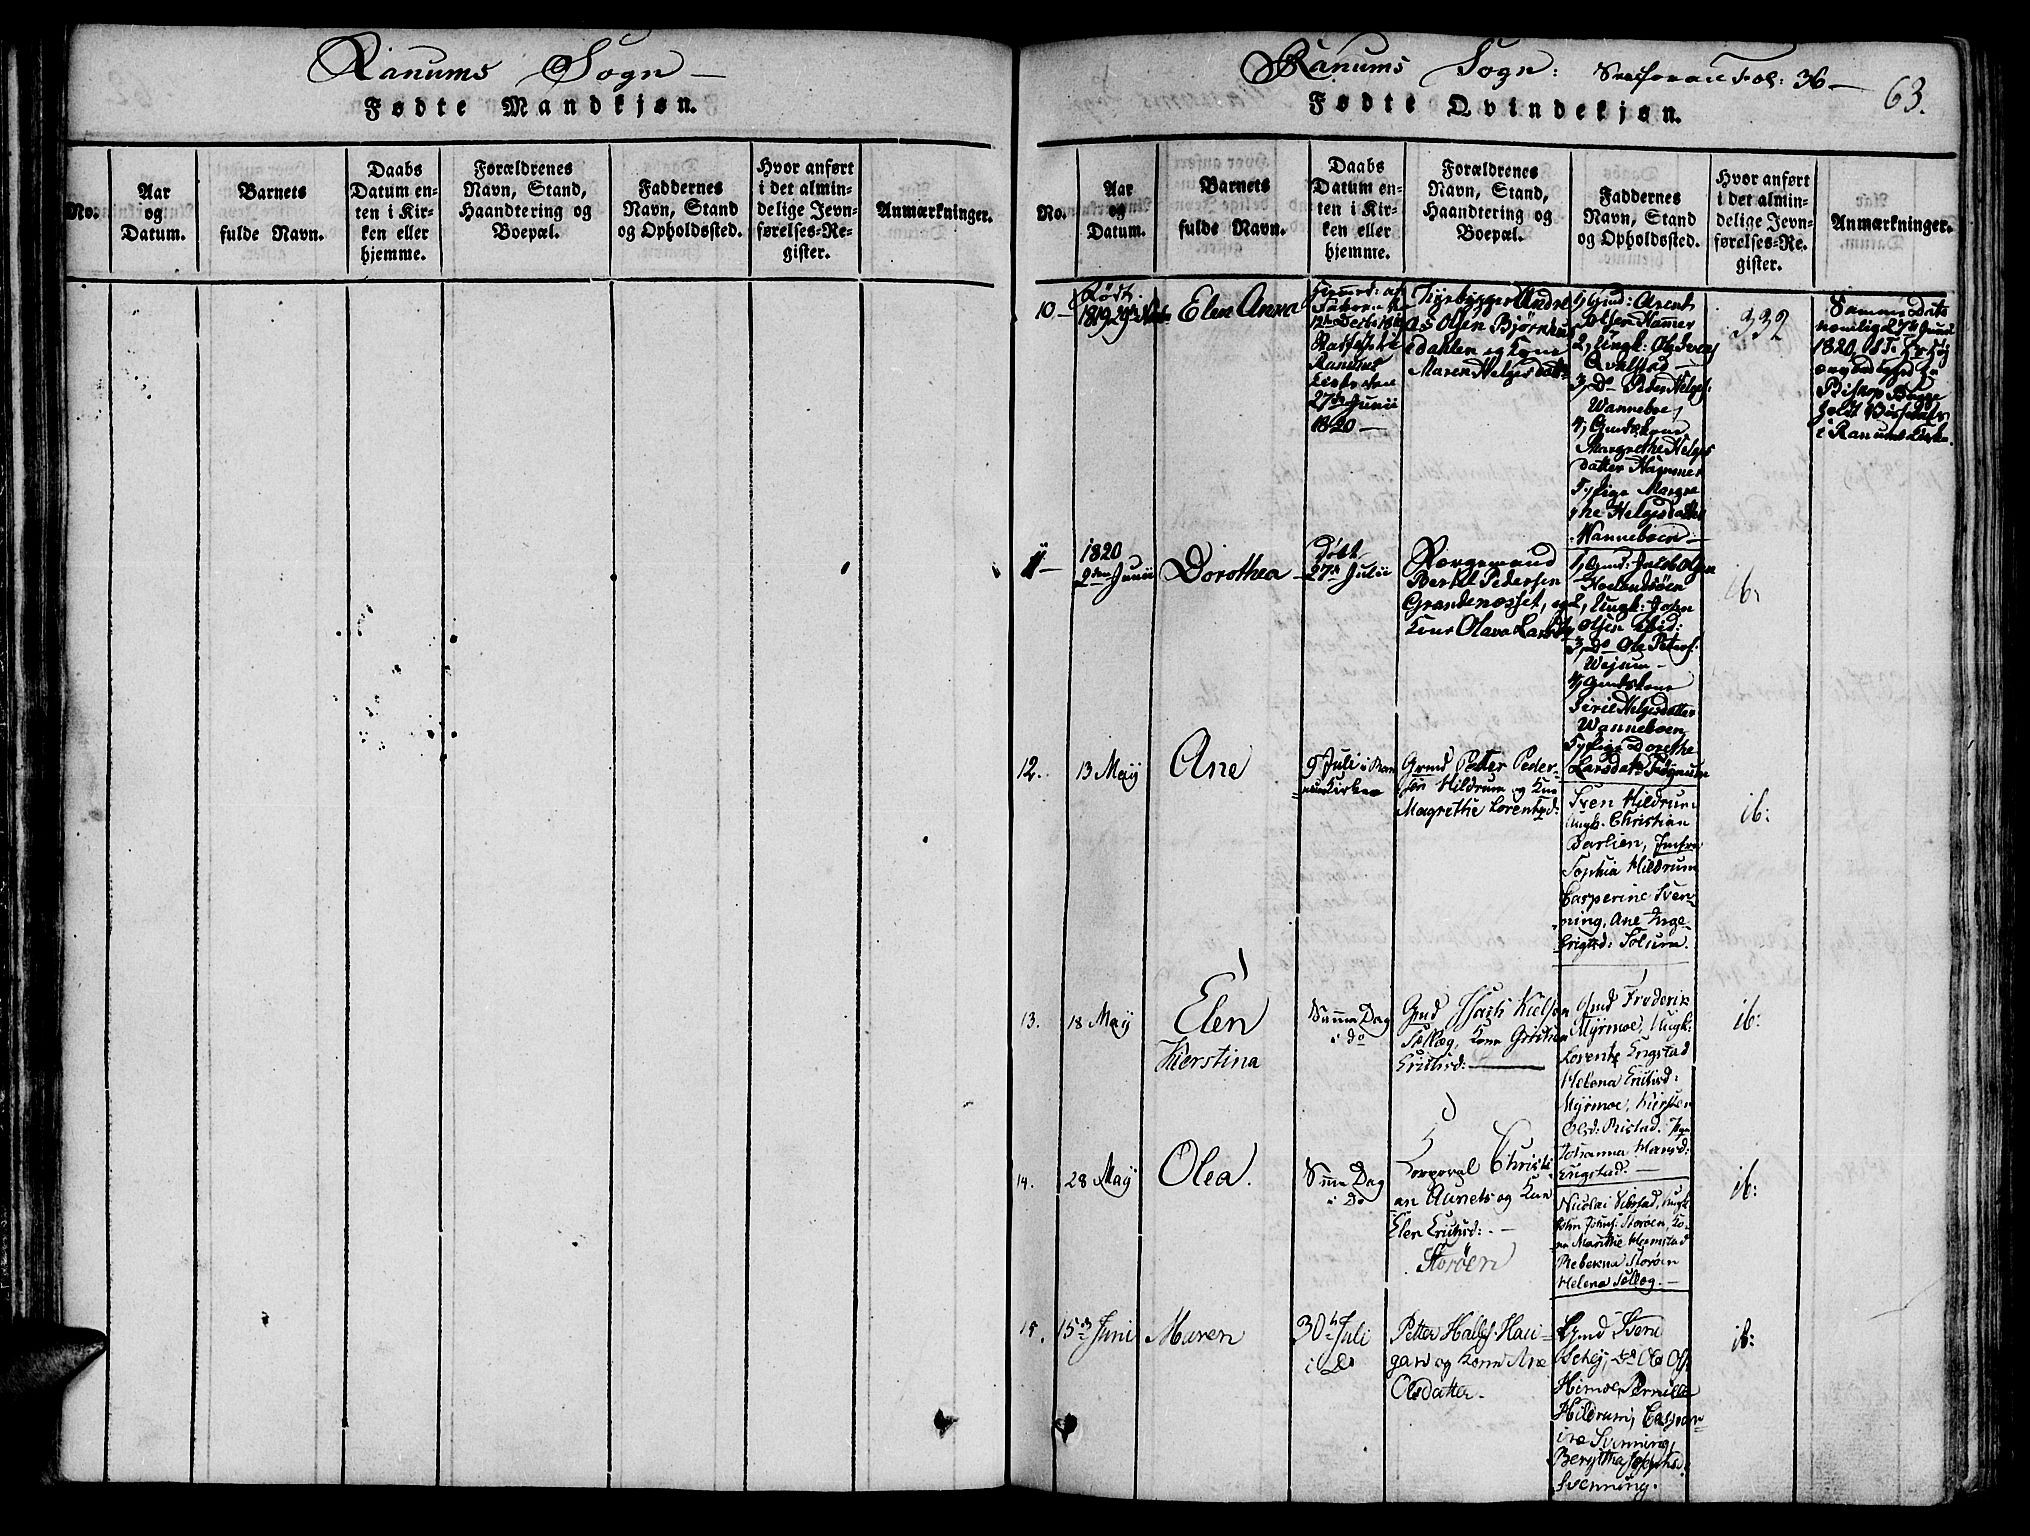 Ranums Sogn —
Fødte Mandkjøn.
No.
Aar
og
Datum.
Barnets
fulde Navn.
Daabs
Datum en-
ten i Kir-
ken eller
hjemme.
Forældrenes
Navn, Stand,
Haandtering og
Boepæl.
Faddernes
Navn, Stand
og Opholdssted.
Hvor anført
i det almin-
delige Jevn-
førelses-Re-
gister.
Anmærkninger.
Ranums Sogn: Fol: 36 —
63.
Fødte Qvindekjøn.
No.
Aar
og
Datum.
Barnets
fulde Navn.
Daabs
Datum en-
ten i Kir-
ken eller
hjemme.
Forældrenes
Navn, Stand,
Haandtering og
Boepæl.
Faddernes
Navn, Stand
og Opholdssted.
Hvor anført
i det almin-
delige Jevn-
førelses-Re-
gister.
Anmærkninger.
10 —
Født
1819
Elen Anna
Ranums
27de Junii
1820 —
Andre
as Olsen Bjørnhus
dahlen og Kone
Maren Helgesdatt:
1, Gmd: Arent
Olsen Hammer
2, Ungk: Ole
Qvalstad —
3, Do Peder Helges:
Wanneboe
4, Gmdskone
Margrethe Helges
datter Hammer
5, pige Margre
the Helgesdatter
Wanneboen —
332
Samme Dato
nemlig 27de Junii
1820
Biskop Bugge
holdt
i Ranums Kirke
11 —
1820
2den Junii
Dorothea
Døbt
27de Julii
Bertel Pedersen
Grandenosset, og
Kone Olava Larsd:
1, Gmd:
2, Ungk: John
Olsen ibid:
3, do Ole Peters:
Wejum —
4, Gmdskone
Siril Helgesdatter
Wanneboen
5, pige Dorethe
Larsdatr
ib:
12.
13 Maÿ
Ane
9 Juli i Ran
umKirke
Gmd Petter Peder-
sen Hildrum og Kne
Magrethe Lorentzd:
Sven Hildrum
Ungk. Christian
Barlien, Jmfru
Sophia Hildrum
Casperine Sven-
ning, Ane Inge-
brigtsd: Solum.
ib:
13.
18 Maÿ
Elen
Kierstina
Samme Dag
i do
Gmd Isach Kielsen
Sellæg, Kone
Erichsd:
Gmd Frederik
Myrmoe, Ungk:
Lorentz Engstad
Helena Erichsd:
Myrmoe, Kiersten
Olsd: Ristad. Pige
Johanna Hansd:
Engstad. —
ib:
14.
28 Maÿ
Olea.
Samme Dag
i Do
Corporal Christi
an Aunets og Kone
Elen Erichsd: —
Storøen
Nicolai Vibstad, Ungk
John Johns: Storøen, Ko-
ne Marithe Hemstad
Rebekka Storøen
Helena Sellæg. —
ib:
15.
15de Juni
Maren
30te Juli
i Do
Petter Halfs: Hau-
gan og Kone Ane
Olsdatter.
Gmd Sven
do Ole Ols:
Himoe, Pernille
Hildrum, Caspa-
rine Svenning,
Berytha Josephsd:
Svenning.
ib: